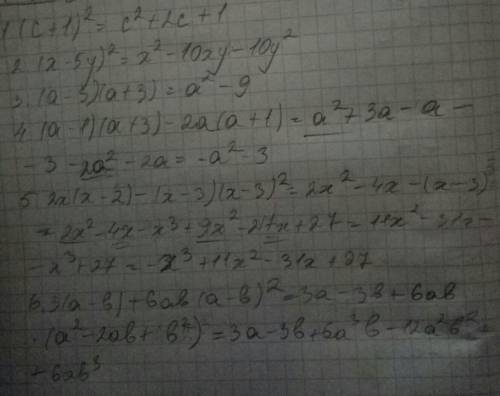 1 (c+1)² = c²+2c+1
2. (x-5y)² = x²-10xy-10y²
3. (a-3)(a+3) = a²-9
4. (a-1)(a+3)-2a(a+1) = a²+3a-a-
-3-2a²-2a = -a²-3
5. 2x(x-2)-(x-3)(x-3)² = 2x²-4x-(x-3)³
= 2x²-4x-x³+9x²-27x+27 = 11x²-31x-
-x³+27 = -x³+11x²-31x+27
6. 3(a-b)+6ab(a-b)² = 3a-3b+6ab
·(a²-2ab+b²) = 3a-3b+6a³b-12a²b²+
+6ab³